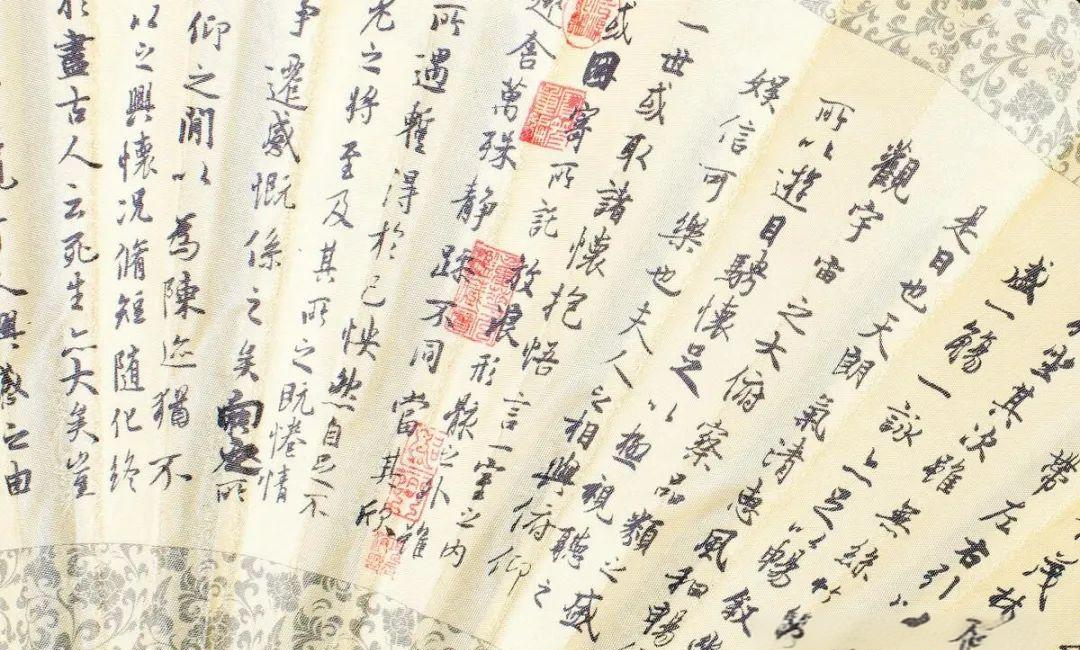 茂林
帶左右引以
坐其次雖無絲竹
盛一觴一詠亦足以暢敘
是日也天朗氣清惠風和暢
觀宇宙之大俯察品類之盛
所以遊目騁懷足以極視聽之
娛信可樂也夫人之相與俯仰
一世或取諸懷抱悟言一室之內
或因寄所託放浪形骸之外雖
舍萬殊靜躁不同當其欣
所遇暫得於己怏然自足不
老之將至及其所之既惓情
事遷感慨係之矣向之所
仰之閒以為陳迹猶不
以之興懷況脩短隨化終
於盡古人云死生亦大矣豈
人興感之由